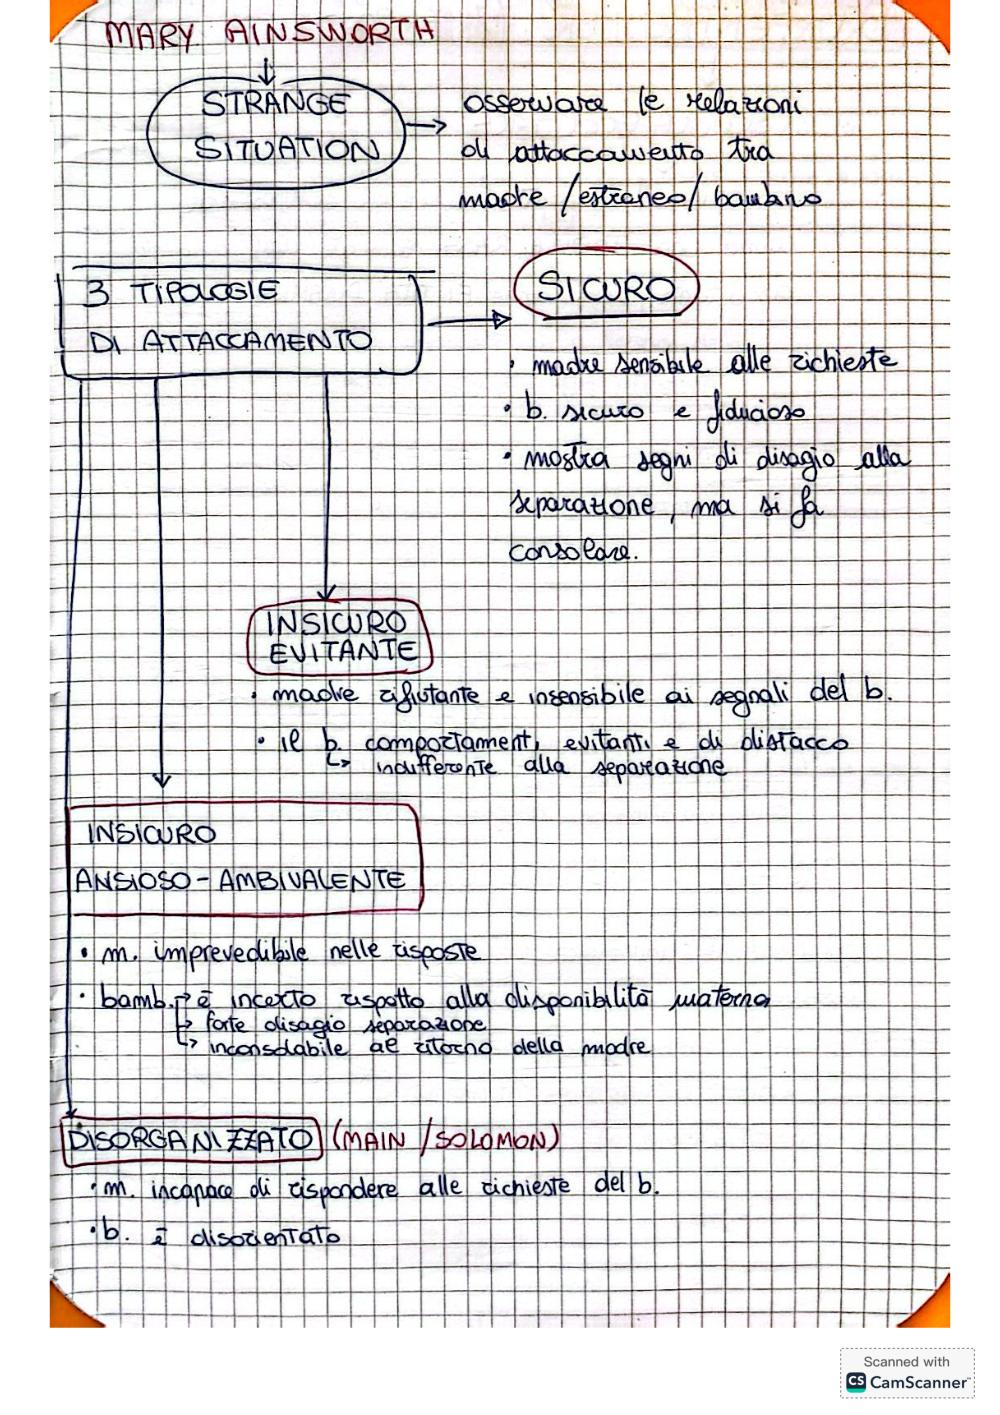 MARY AINSWORTH
STRANGE
SITUATION
osservare le relazioni
di attaccamento tra
madre /estraneo/ bambino
3 TIPOLOGIE
DI ATTACCAMENTO
SICURO
• madre sensibile alle richieste
• b. sicuro e fiducioso
• mostra segni di disagio alla
separazione, ma si fa
consolare.
INSICURO
EVITANTE
• madre rifiutante e insensibile ai segnali del b.
• il b. comportamenti evitanti e di distacco
↳ indifferente alla separazione
INSICURO
ANSIOSO-AMBIVALENTE
• m. imprevedibile nelle risposte
• bamb. è incerto rispetto alla disponibilità materna
↳ forte disagio separazione
↳ inconsolabile al ritorno della madre
DISORGANIZZATO (MAIN /SOLOMON)
• m. incapace di rispondere alle richieste del b.
• b. è disorientato
Scanned with
CS CamScanner